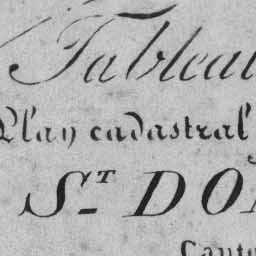 Tableau
Plan cadastral
ST DO
Canto